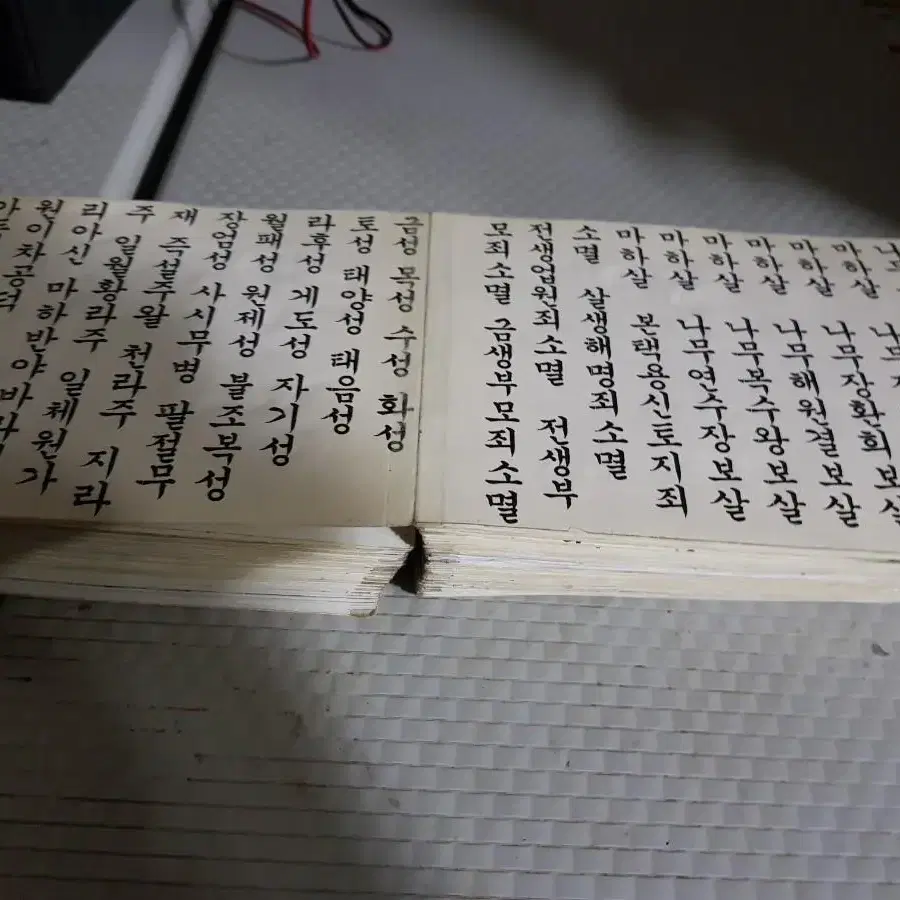 마하살
마하살 나무장환회보살
마하살 나무해원결보살
마하살 나무복수왕보살
마하살 나무연수장보살
마하살 본택용신토지죄
소멸 살생해명죄소멸
전생업원죄소멸 전생부
모죄소멸 금생부모죄소멸
금성 목성 수성 화성
토성 태양성 태음성
라후성 게도성 자기성
월패성 원제성 불조복성
장엄성 사시무병 팔절무
재 즉설주왈 천라주 지라
주 일월황라주 일체원가
리아신 마하반야바라
원이차공덕